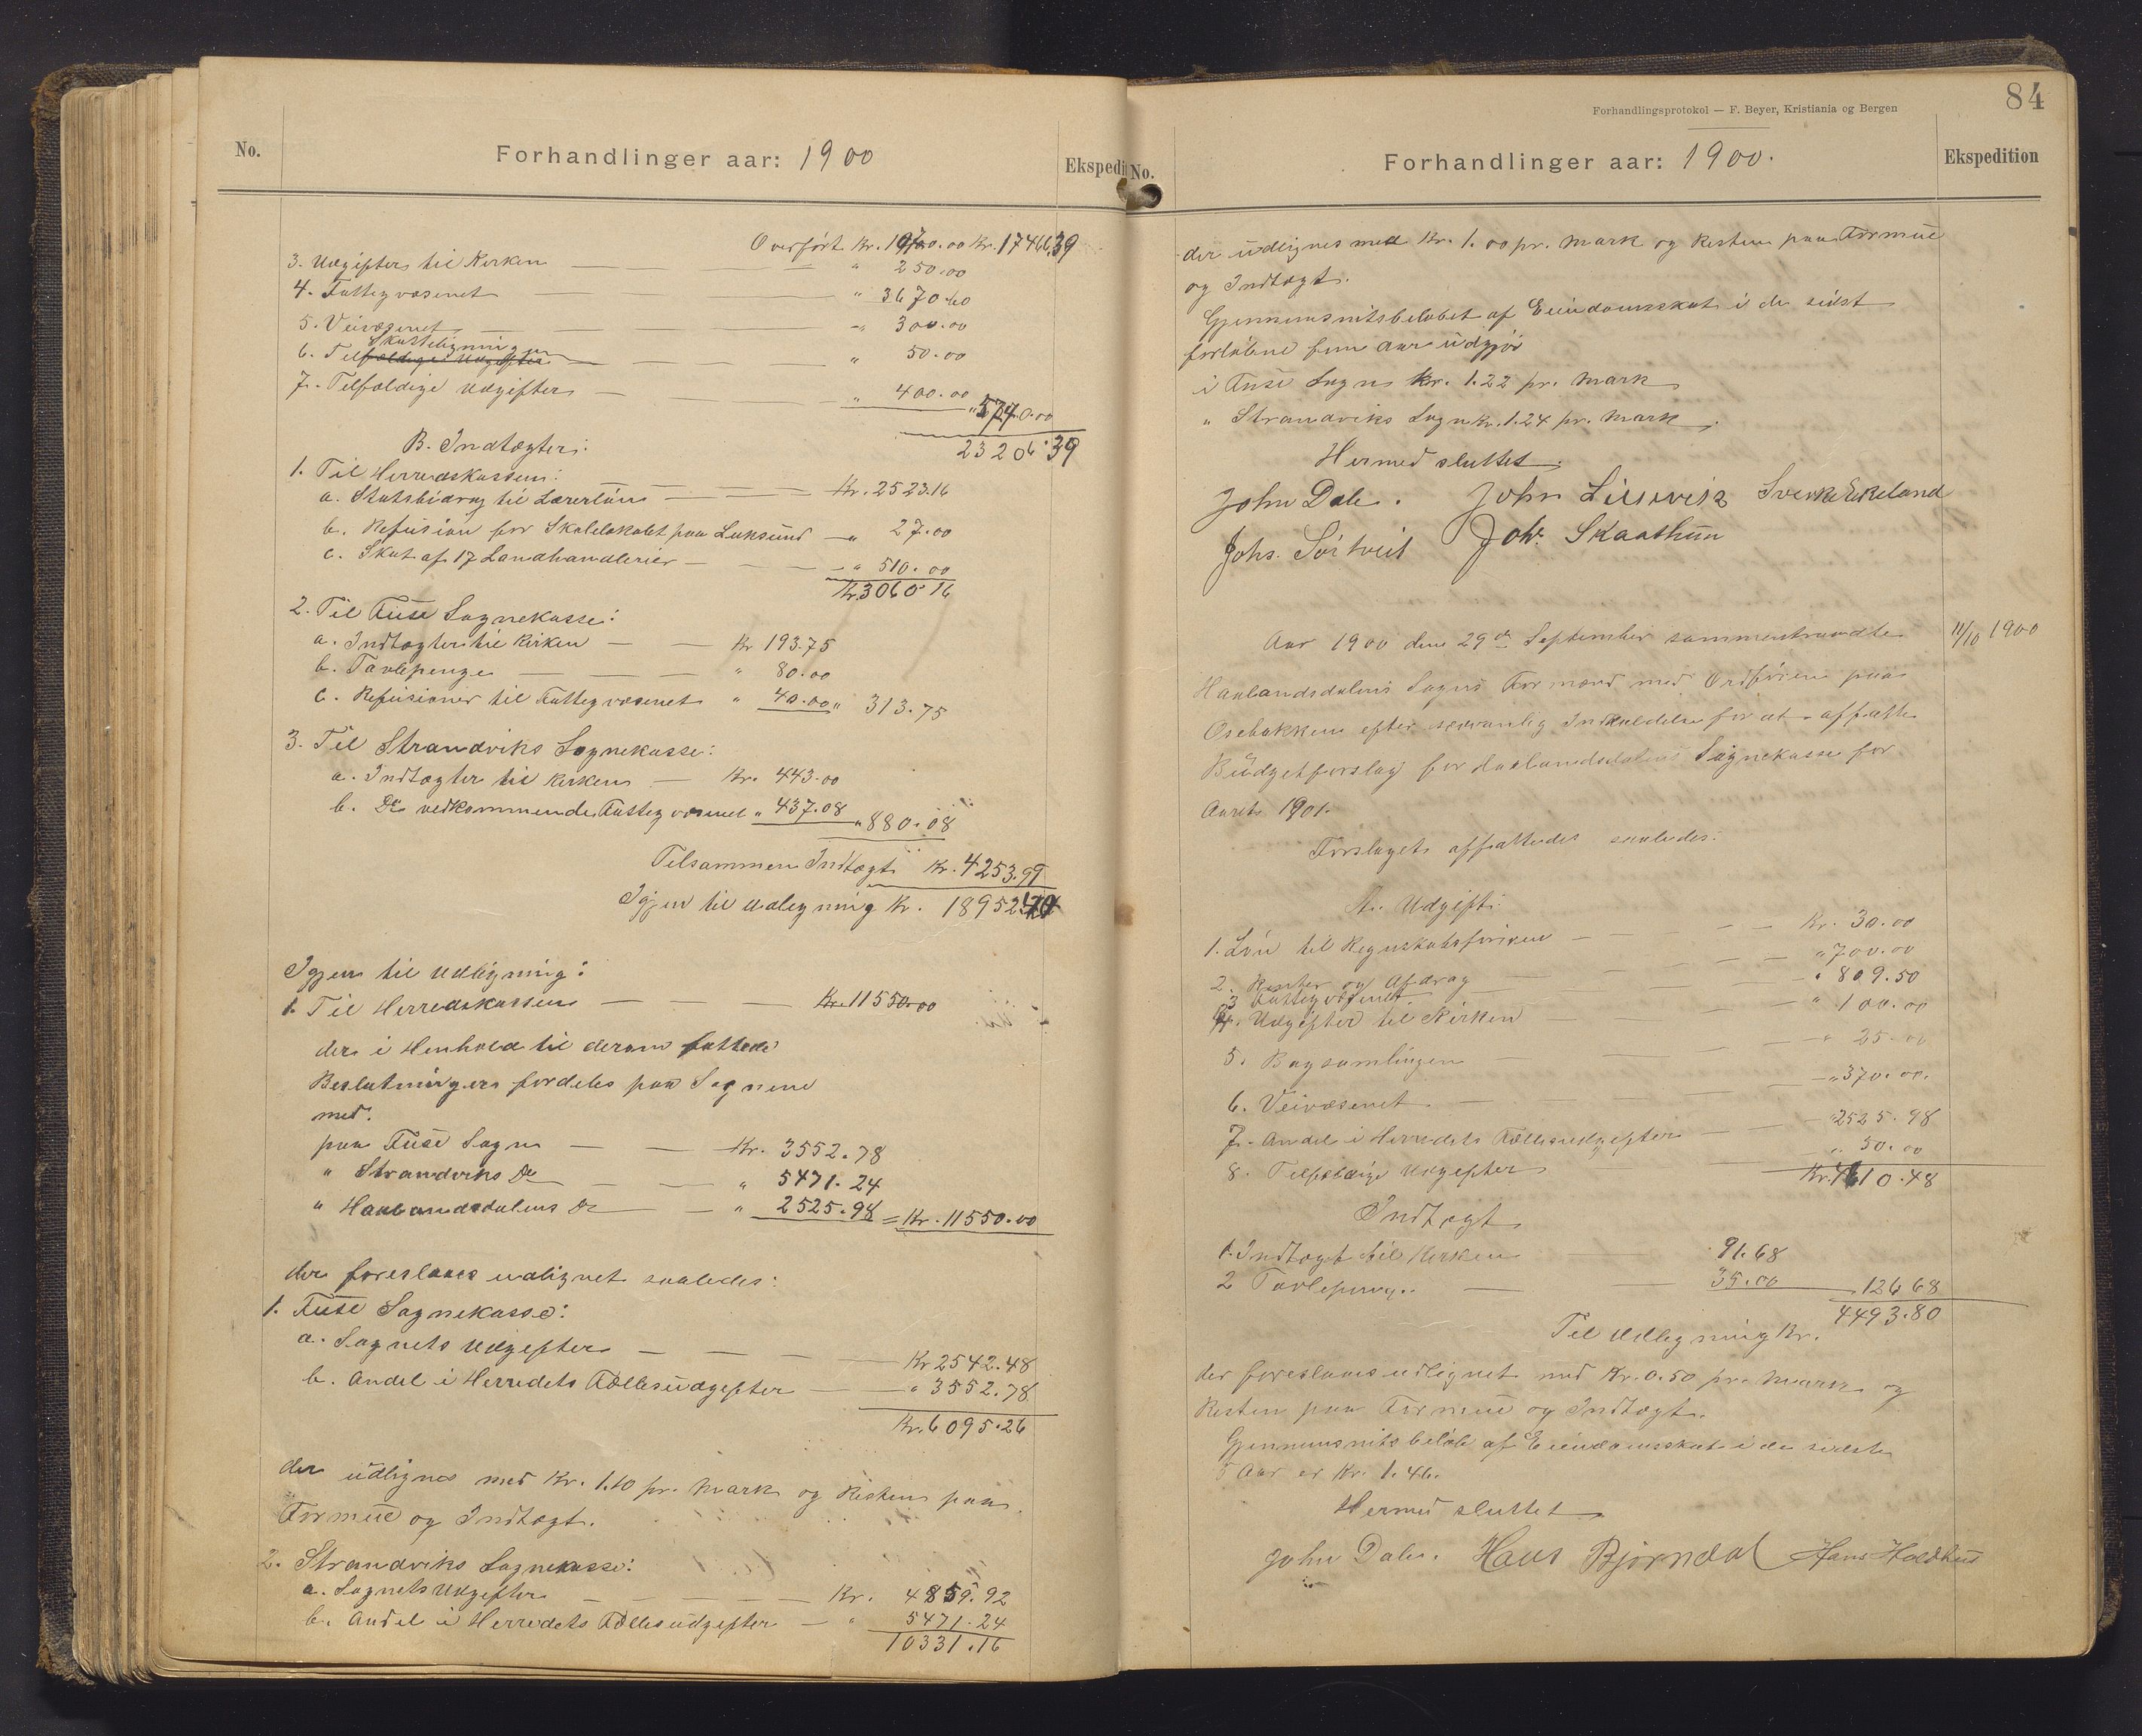 No.
Forhandlinger aar: 1900
Ekspedi
Overført Kr. 1070.00 Kr. 17466.39
3. Udgifter til Kirken " 250.00
4. Fattigvæsenet " 3670.60
5. Veivæsenet " 300.00
6. Skatteligningen " 50.00
7. Tilfældige Udgifter " 400.00
" 5740.00
23206.39
B. Indtægter:
1. Til Herredskassen:
a. Statsbidrag til Lærerløn Kr. 2523.16
b. Refusion for Skolelokalet paa Luksund " 27.00
c. Skat af 17 Landhandlerier " 510.00
Kr. 3060.16
2. Til Fuse Sognekasse:
a. Indtægter til Kirken Kr 193.75
b. Tavlepenge " 80.00
c. Refusioner til Fattigvæsenet " 40.00 " 313.75
3. Til Strandviks Sognekasse:
a. Indtægter til Kirken Kr. 443.00
b. Do vedkommende Fattigvæsenet " 437.08 " 880.08
Tilsammen Indtægt Kr. 4253.99
Igjen til Udligning Kr. 18952.40
Igjen til Udligning:
1. Til Herredskassen Kr. 11550.00
der i Henhold til derom fattede
Beslutninger fordeles paa Sognene
med:
paa Fuse Sogn Kr. 3552.78
" Strandviks Do " 5471.24
" Haalandsdalens Do " 2525.98 = Kr. 11550.00
der foreslaaes udlignet saaledes:
1. Fuse Sognekasse:
a. Sognets Udgifter Kr 2542.48
b. Andel i Herredets Fællesudgifter " 3552.78
Kr. 6095.26
der udlignes med Kr. 1.10 pr. Mark og Resten paa
Formue og Indtægt.
2. Strandviks Sognekasse:
a. Sognets Udgifter Kr. 4859.92
b. Andel i Herredets Fællesudgifter " 5471.24
10331.16
Forhandlingsprotokol — F. Beyer, Kristiania og Bergen
84
No.
Forhandlinger aar: 1900.
Ekspedition
der udlignes med Kr. 1.00 pr. Mark og Resten paa Formue
og Indtægt.
Gjennemsnitsbeløbet af Eiendomsskat i de sidst
forløbne fem Aar udgjør
i Fuse Sogn Kr. 1.22 pr. Mark
" Strandviks Sogn Kr. 1.24 pr. Mark.
Hermed sluttet.
John Dale. John Sverke Ekeland
Johs. Sørtveit Joh. Skaathun
Aar 1900 den 29de September sammentraadte
11/10 1900
Haalandsdalens Sogns Formænd med Ordføreren paa
Osebakken efter sædvanlig Indkaldelse for at affatte
Budgetforslag for Haalandsdalens Sognekasse for
Aaret 1901.
Forslaget affattedes saaledes:
A. Udgift:
1. Løn til Regnskabsføreren Kr. 30.00
2. Renter og Afdrag " 700.00
3 Fattigvæsenet " 809.50
4. Udgifter til Kirken " 100.00
5. Bogsamlingen " 25.00
6. Veivæsenet " 370.00.
7. Andel i Herredets Fællesudgifter " 2525.98
8. Tilfældige Udgifter " 50.00
Kr. 4610.48
Indtægt
1. Indtægt til Kirken 91.68
2 Tavlepenge. 35.00 126 68
Til Udligning Kr. 4493.80
der foreslaaes udlignet med Kr. 0.50 pr. Mark og
Resten paa Formue og Indtægt.
Gjennemsnitsbeløb af Eiendomsskat i de sidste
5 Aar er Kr. 1.46.
Hermed sluttet
John Dale. Hans Bjørndal Hans Holdhus